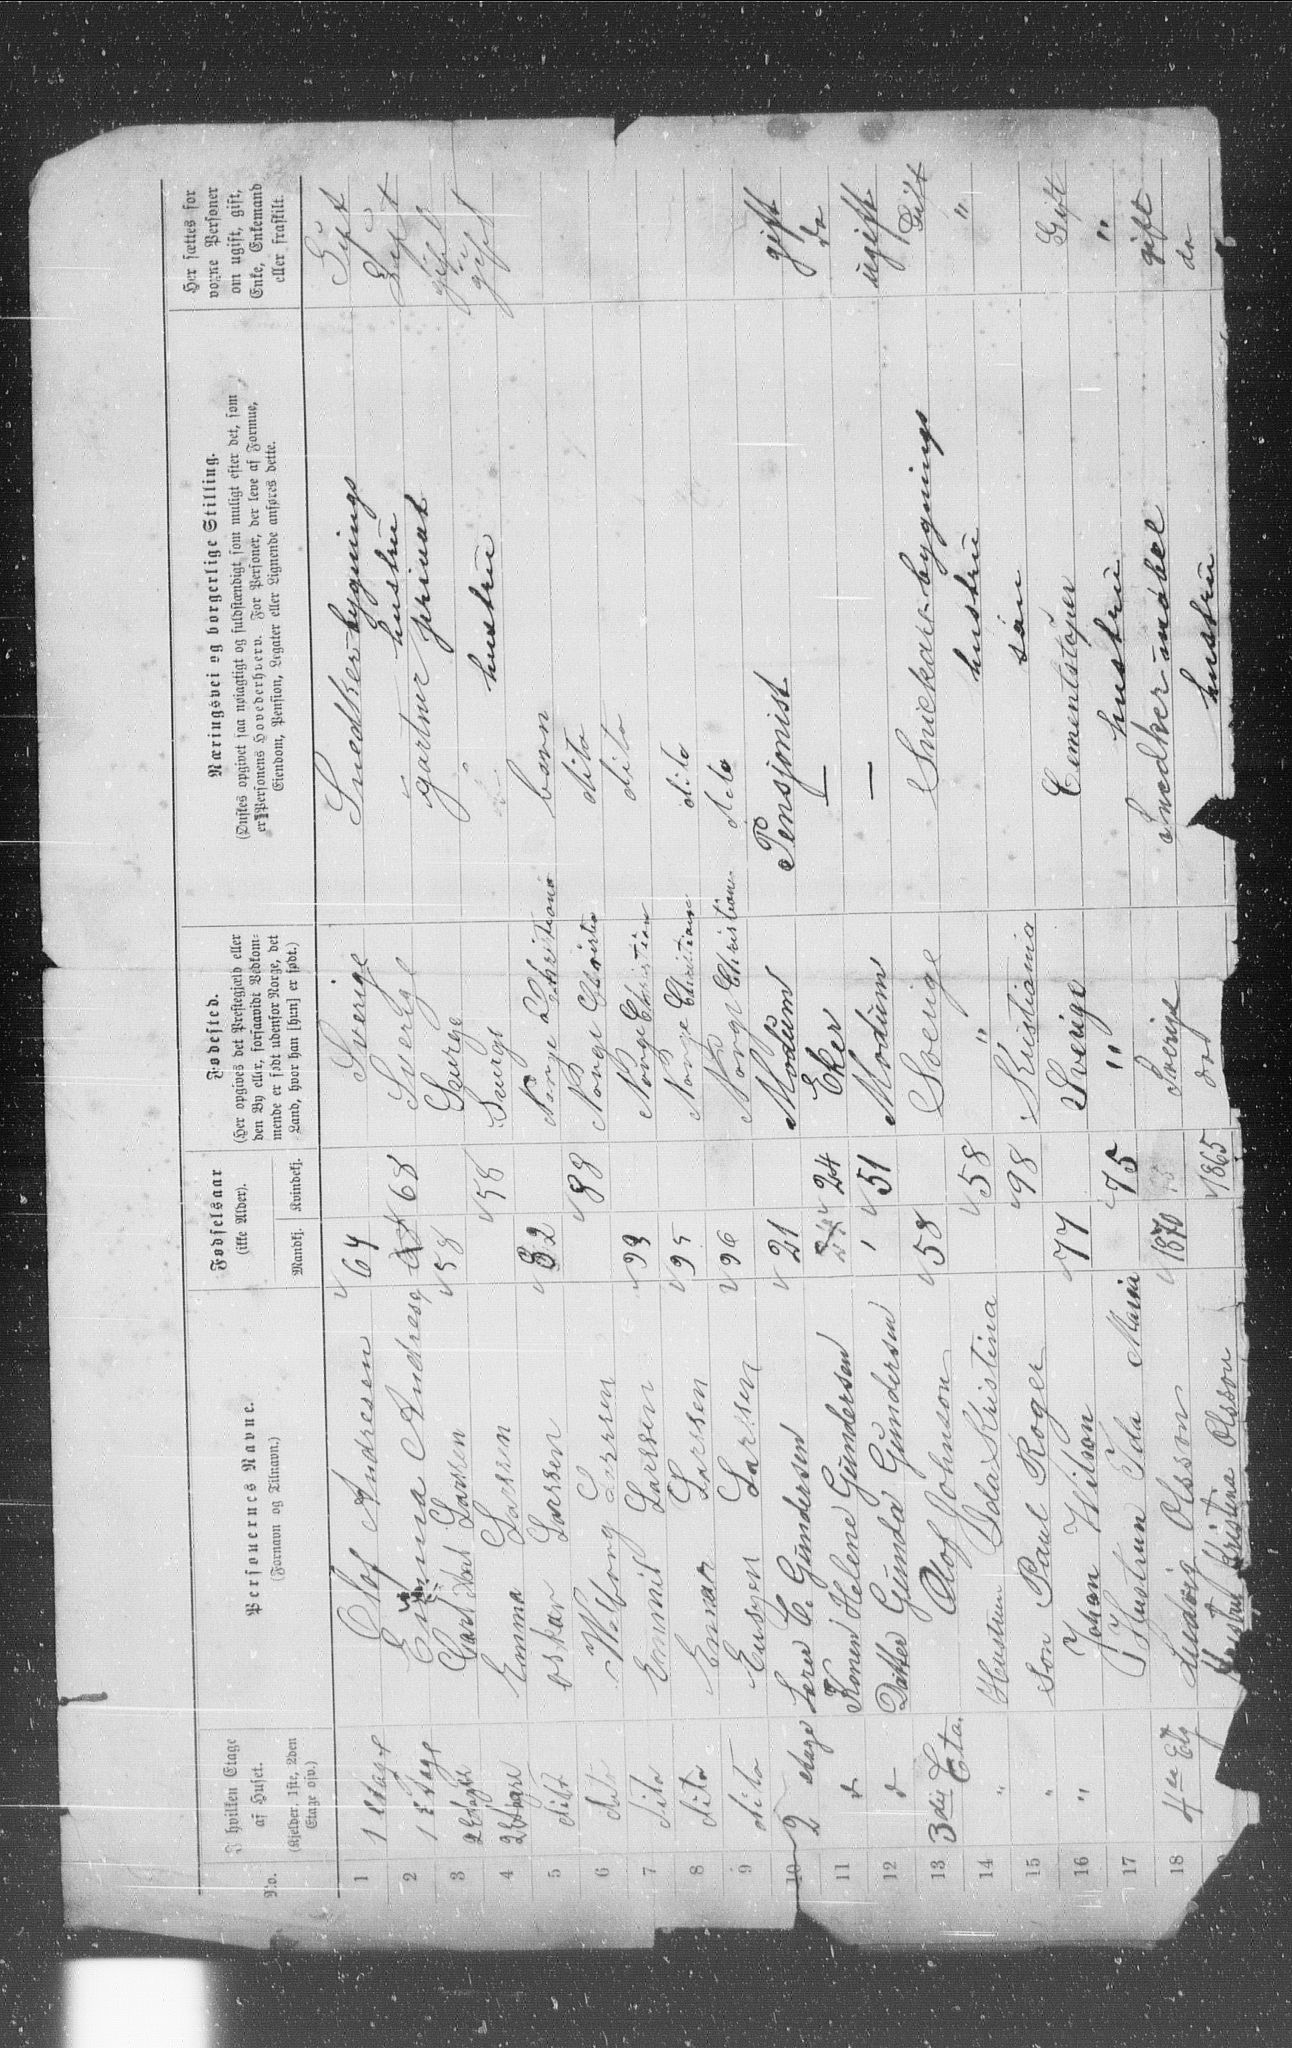 No.
I hvilken Etage
af Huset.
(Kjelder, 1ste, 2den
Etage osv.)
Personernes Navne.
(Fornavn og Tilnavn.)
Fødselsaar
(ikke Alder).
Mandkj. Kvindekj.
Fødested.
(Her opgives det Prestegjæld eller
den By eller, forsaavidt Vedkom-
mende er født udenfor Norge, det
Land, hvor han [hun] er født.)
Næringsvei og borgerlige Stilling.
(Ønskes opgivet saa nøiagtigt og fuldstændigt som muligt efter det, som
er Personens Hovederhverv. For Personer, der leve af Formue,
Eiendom, Pension, Legater eller Lignende anføres dette.
Her sættes for
vorne Personer
om ugift, gift,
Enke, Enkemand
eller fraskilt.
1 1 Etage Olof Andresen 64 Sverige Snedker-bygnings Gift
2 1 Etage Andresen 68 Sverige hustru Gift
3 2 Etage Carl Larssen 58 Sverge gartner privat gift
4 2 Etage Emma Larssen 58 Sverge hustru gift
5 dito oskar Larssen 82 Norge Christiania barn
6 dito Larssen 88 Norge dito
7 dito Emmil Larssen 93 Norge Christian dito
8 dito Einar Larssen 95 Norge Christian dito
9 dito Eugen Larssen 96 Norge Christian dito
10 2 etage Lerer C. Gundersen 21 Modum Pensjonist gift
11 d Konen Helene Gundersen 24 Eker — do
12 d Datter Gunda Gundersen 51 Modum — ugift
13 3die Eta. Olof Johnson 58 Sverige Sniekare-bygnings Gift
14 " Hustrun Ida Kristina 58 " hustru "
15 " Son Paul Roger 98 Kristiania sön
16 " Johan Nilson 77 Sverige Cementstöper Gift
17 Hustrun Ida Maria 75 " hustru "
18 4de Etg Ludvig Olsson 1870 Sverige Snedker-møbel gift
Hustru Kristina Olsson 1865 do hustru do